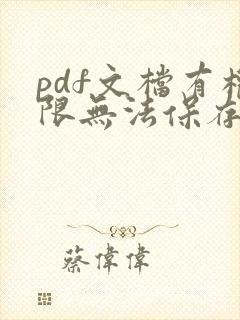 pdf文檔有權
限無法保存
蔡偉偉